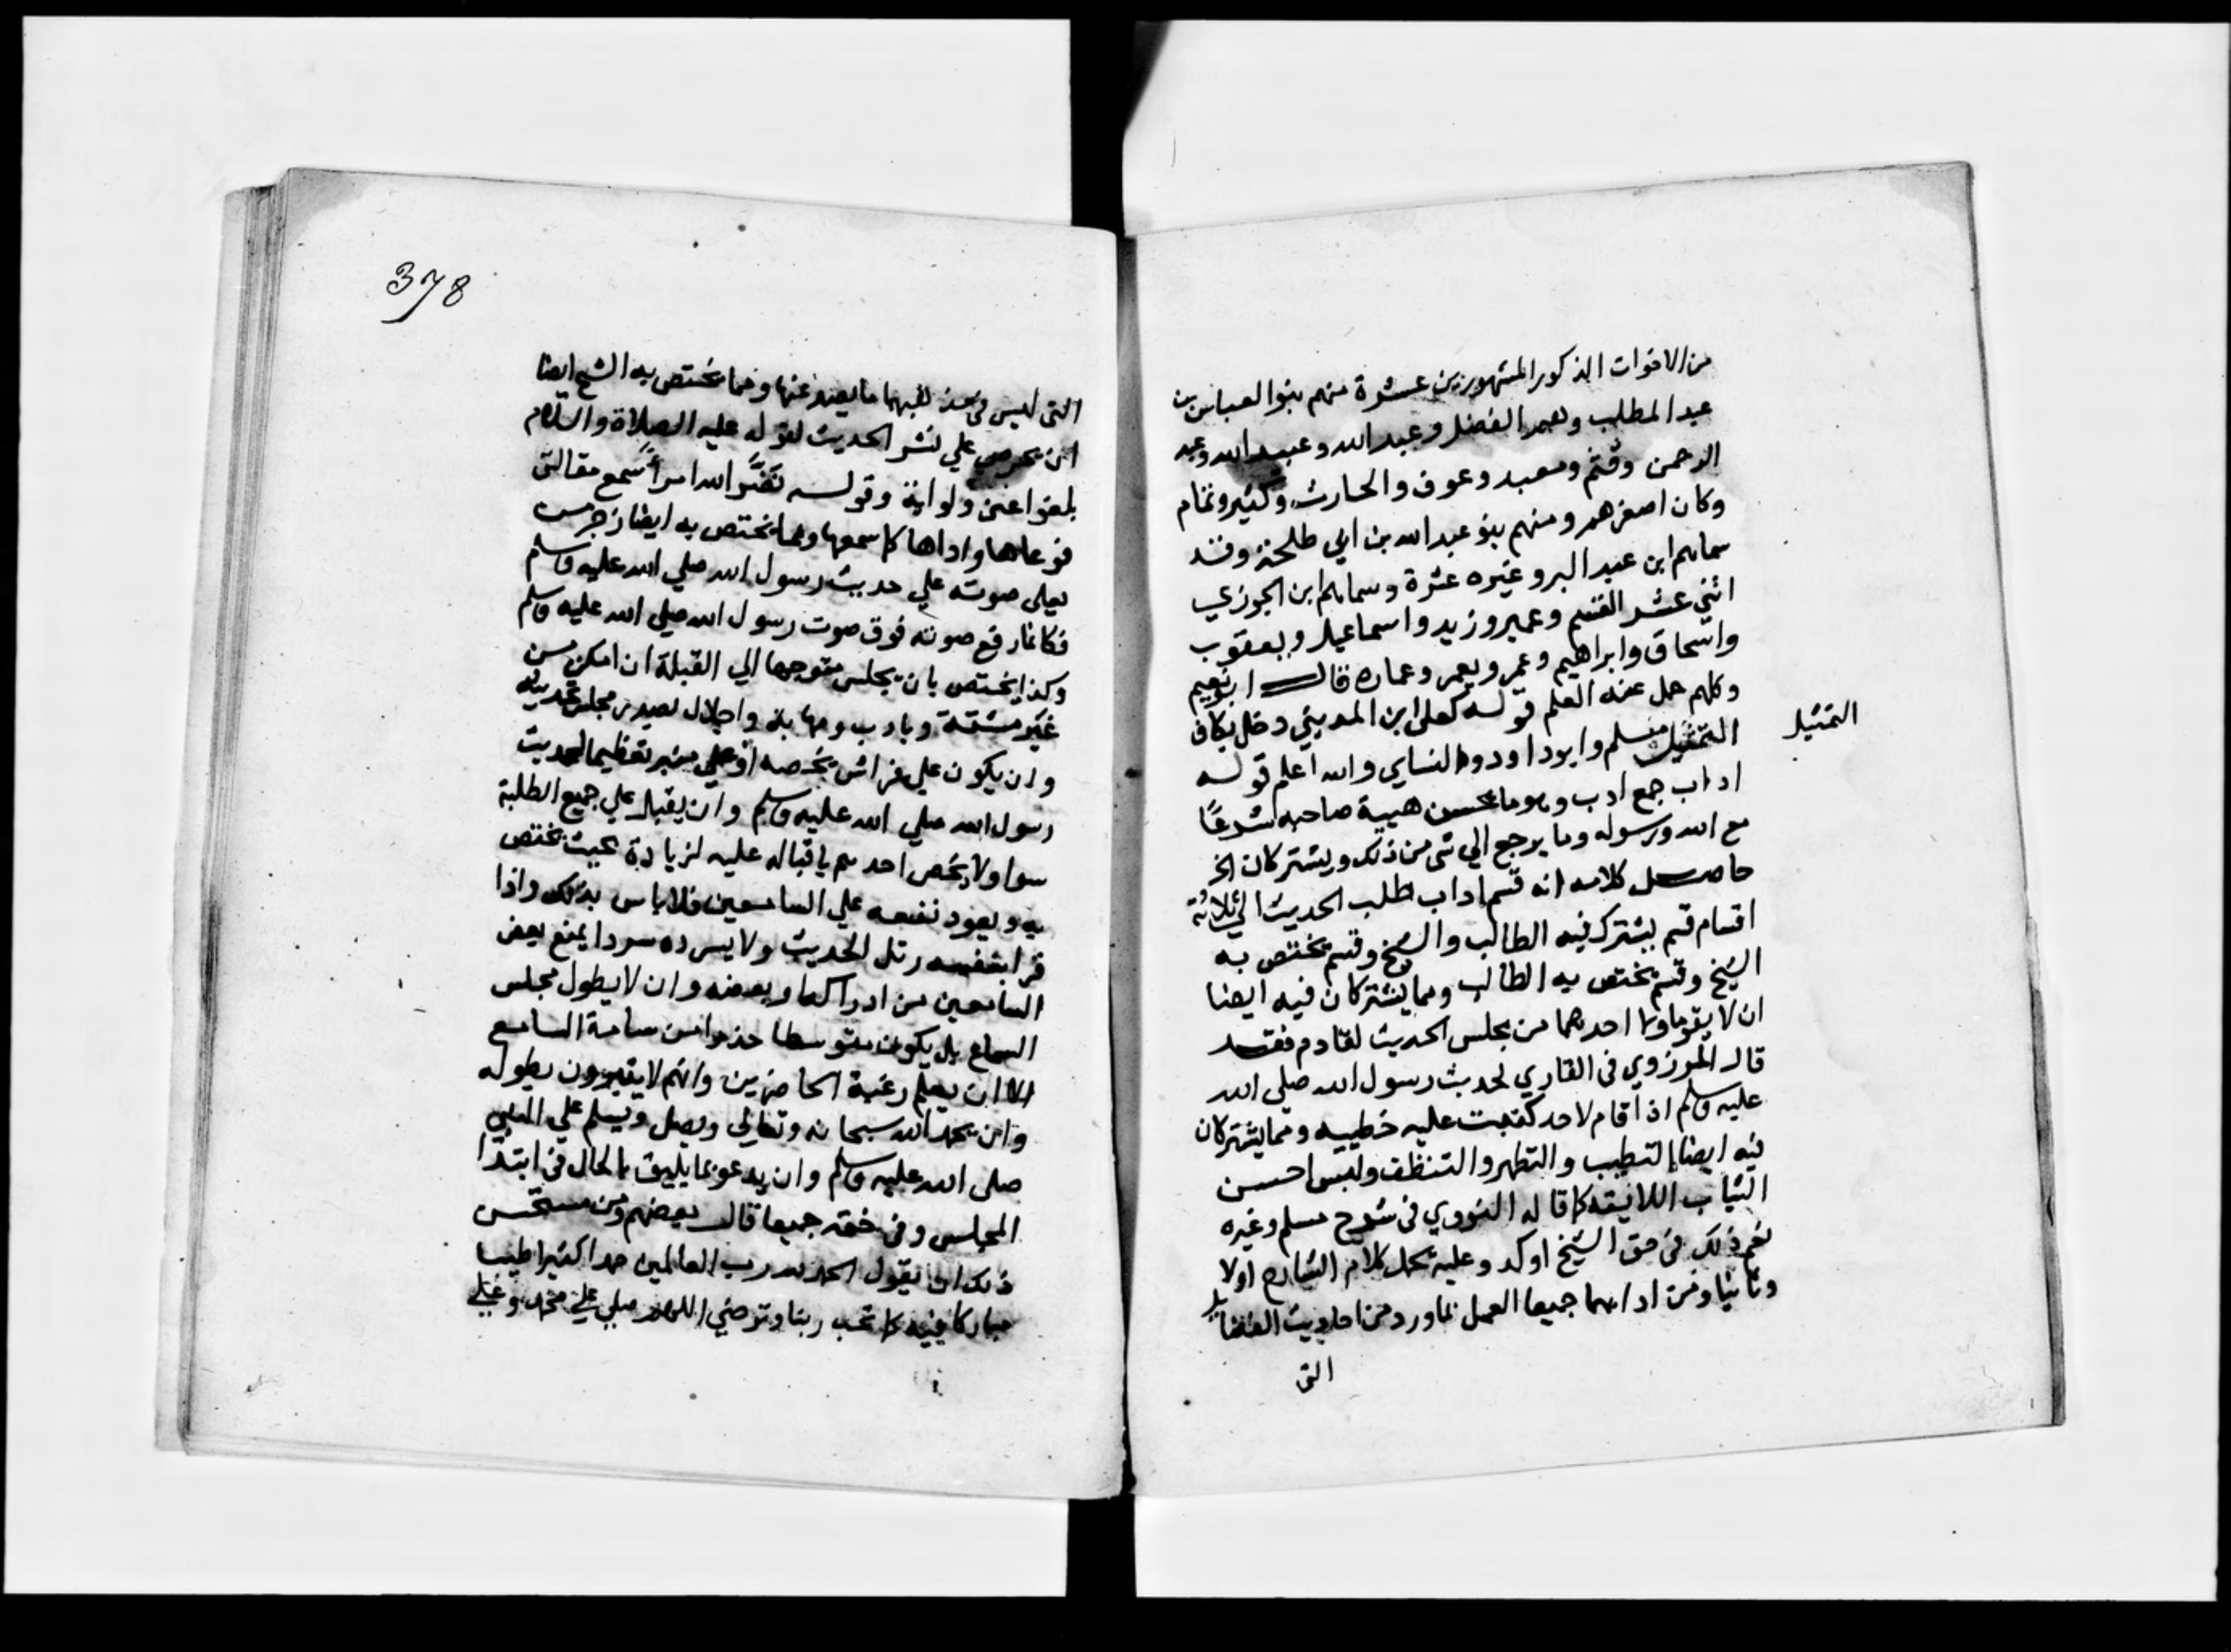 من الاخوات الذكور المشهورين عشرة منهم بنو العباس بن
عبد المطلب وهم الفضل وعبد الله وعبيد الله وعبد
الرحمن وقثم ومعبد وعوف والحارث وكثير وتمام
وكان اصغرهم ومنهم بنو عبد الله بن ابي طلحة وقد
سماهم ابن عبد البر وغيره عشرة وسماهم ابن الجوزي
اثنى عشر القسم وعمير وزيد واسماعيل ويعقوب
واسحاق وابراهيم وعمر ويعمر وعماره قال ابو نعيم
وكلهم حمل عنه العلم قوله كعلى ابن المديني دخل بكاف
التمثيل مسلم وابو داود والنساي والله اعلم قوله
التمثيل
اداب جمع ادب وهو ما يحسن هيية صاحبه شرعًا
مع الله ورسوله وما يرجع الي شى من ذلك ويشتركان الخ
حاصل كلامه انه قسم اداب طلب الحديث الي ثلاثة
اقسام قسم يشترك فيه الطالب والشيخ وقسم يختص به
الشيخ وقسم يختص به الطالب ومما يشتركان فيه ايضا
ان لا يقوما ولا احدهما من مجلس الحديث لقادم فقد
قال المروزوي في القاري لحديث رسول الله صلى الله
عليه وسلم اذا قام لاحد كتبت عليه خطييه ومما يشتركان
فيه ايضا التطيب والتطهر والتنظف ولبس احسن
الثياب اللايقه كما قاله النووي في شرح مسلم وغيره
نعم ذلك في حق الشيخ اوكد وعليه يحمل كلام الشارح اولا
وثانيا ومن ادابهما جميعا العمل بما ورد من احاديث الفضايل
التى
378
التى ليس في سندها ما يصد عنها ومما يختص به الشيخ ايضا
ان يحرص علي نشر الحديث لقوله عليه الصلاة والسلام
بلغوا عنى ولو اية وقوله نَضَّرَ الله امرأً سمع مقالتى
فوعاها واداها كما سمعها ومما يختص به ايضا زجر من
يعلى صوته علي حديث رسول الله صلي الله عليه وسلم
فكانما رفع صوته فوق صوت رسول الله صلي الله عليه وسلم
وكذا يختص بان يجلس متوجها الي القبلة ان امكن من
غير مشقة وبادب ومهابة واجلال بصدر مجلس تحديثه
وان يكون علي فراش يخصه او علي منبر تعظيما لحديث
رسول الله صلي الله عليه وسلم وان يقبل علي جميع الطلبة
سوا ولا يخص احدهم باقباله عليه لزيادة بحيث تختص
به ويعود نفعه علي السامعين فلا باس بذلك واذا
قرا بنفسه رتل الحديث ولا يسرده سردا يمنع بعض
السامعين من ادراكها وبعضه وان لا يطول مجلس
السماع بل يكون متوسطا حذرا من سامة السامع
الا ان يعلم رغبة الحاضرين وانهم لا يتبرمون بطوله
وان يحمد الله سبحانه وتعالي ويصل ويسلم علي النبي
صلى الله عليه وسلم وان يدعو بما يليق بالحال في ابتدا
المجلس وفي ختمه جميعا قال بعضهم ومن مستحسن
ذلك ان يقول الحمد لله رب العالمين حمدا كثيرا طيبا
مباركا فيه كما تحب ربنا وترضي اللهم صلي علي محمد وعلي